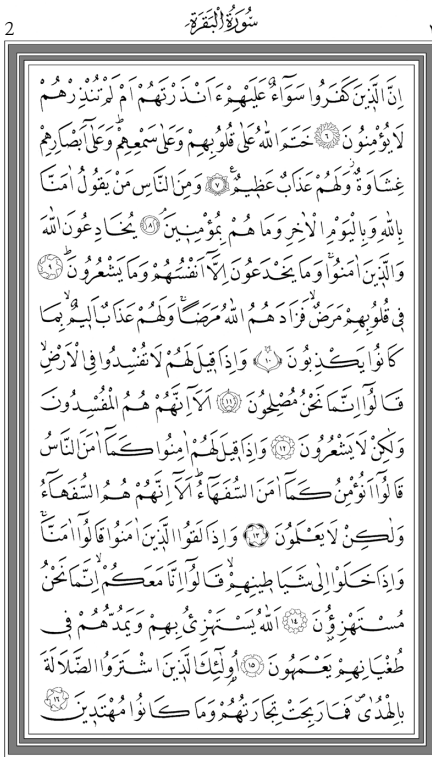 2
سُورَةُ الْبَقَرَةِ
اِنَّ الَّذٖينَ كَفَرُوا سَوَٓاءٌ عَلَيْهِمْ ءَاَنْذَرْتَهُمْ اَمْ لَمْ تُنْذِرْهُمْ
لَا يُؤْمِنُونَ ﴿٦﴾ خَتَمَ اللّٰهُ عَلٰى قُلُوبِهِمْ وَعَلٰى سَمْعِهِمْؕ وَعَلٰٓى اَبْصَارِهِمْ
غِشَاوَةٌؗ وَلَهُمْ عَذَابٌ عَظٖيمٌࣖ ﴿٧﴾ وَمِنَ النَّاسِ مَنْ يَقُولُ اٰمَنَّا
بِاللّٰهِ وَبِالْيَوْمِ الْاٰخِرِ وَمَا هُمْ بِمُؤْمِنٖينَۘ ﴿٨﴾ يُخَادِعُونَ اللّٰهَ
وَالَّذٖينَ اٰمَنُواۚ وَمَا يَخْدَعُونَ اِلَّٓا اَنْفُسَهُمْ وَمَا يَشْعُرُونَؕ ﴿٩﴾
فٖي قُلُوبِهِمْ مَرَضٌۙ فَزَادَهُمُ اللّٰهُ مَرَضًاۚ وَلَهُمْ عَذَابٌ اَلٖيمٌۙ بِمَا
كَانُوا يَكْذِبُونَ ﴿١٠﴾ وَاِذَا قٖيلَ لَهُمْ لَا تُفْسِدُوا فِي الْاَرْضِۙ
قَالُٓوا اِنَّمَا نَحْنُ مُصْلِحُونَ ﴿١١﴾ اَلَٓا اِنَّهُمْ هُمُ الْمُفْسِدُونَ
وَلٰكِنْ لَا يَشْعُرُونَ ﴿١٢﴾ وَاِذَا قٖيلَ لَهُمْ اٰمِنُوا كَمَٓا اٰمَنَ النَّاسُ
قَالُٓوا اَنُؤْمِنُ كَمَٓا اٰمَنَ السُّفَهَٓاءُؕ اَلَٓا اِنَّهُمْ هُمُ السُّفَهَٓاءُ
وَلٰكِنْ لَا يَعْلَمُونَ ﴿١٣﴾ وَاِذَا لَقُوا الَّذٖينَ اٰمَنُوا قَالُٓوا اٰمَنَّاۚ
وَاِذَا خَلَوْا اِلٰى شَيَاطٖينِهِمْۙ قَالُٓوا اِنَّا مَعَكُمْۙ اِنَّمَا نَحْنُ
مُسْتَهْزِؤُ۫نَ ﴿١٤﴾ اَللّٰهُ يَسْتَهْزِئُ بِهِمْ وَيَمُدُّهُمْ فٖي
طُغْيَانِهِمْ يَعْمَهُونَ ﴿١٥﴾ اُو۬لٰٓئِكَ الَّذٖينَ اشْتَرَوُا الضَّلَالَةَ
بِالْهُدٰىࣕ فَمَا رَبِحَتْ تِجَارَتُهُمْ وَمَا كَانُوا مُهْتَدٖينَ ﴿١٦﴾